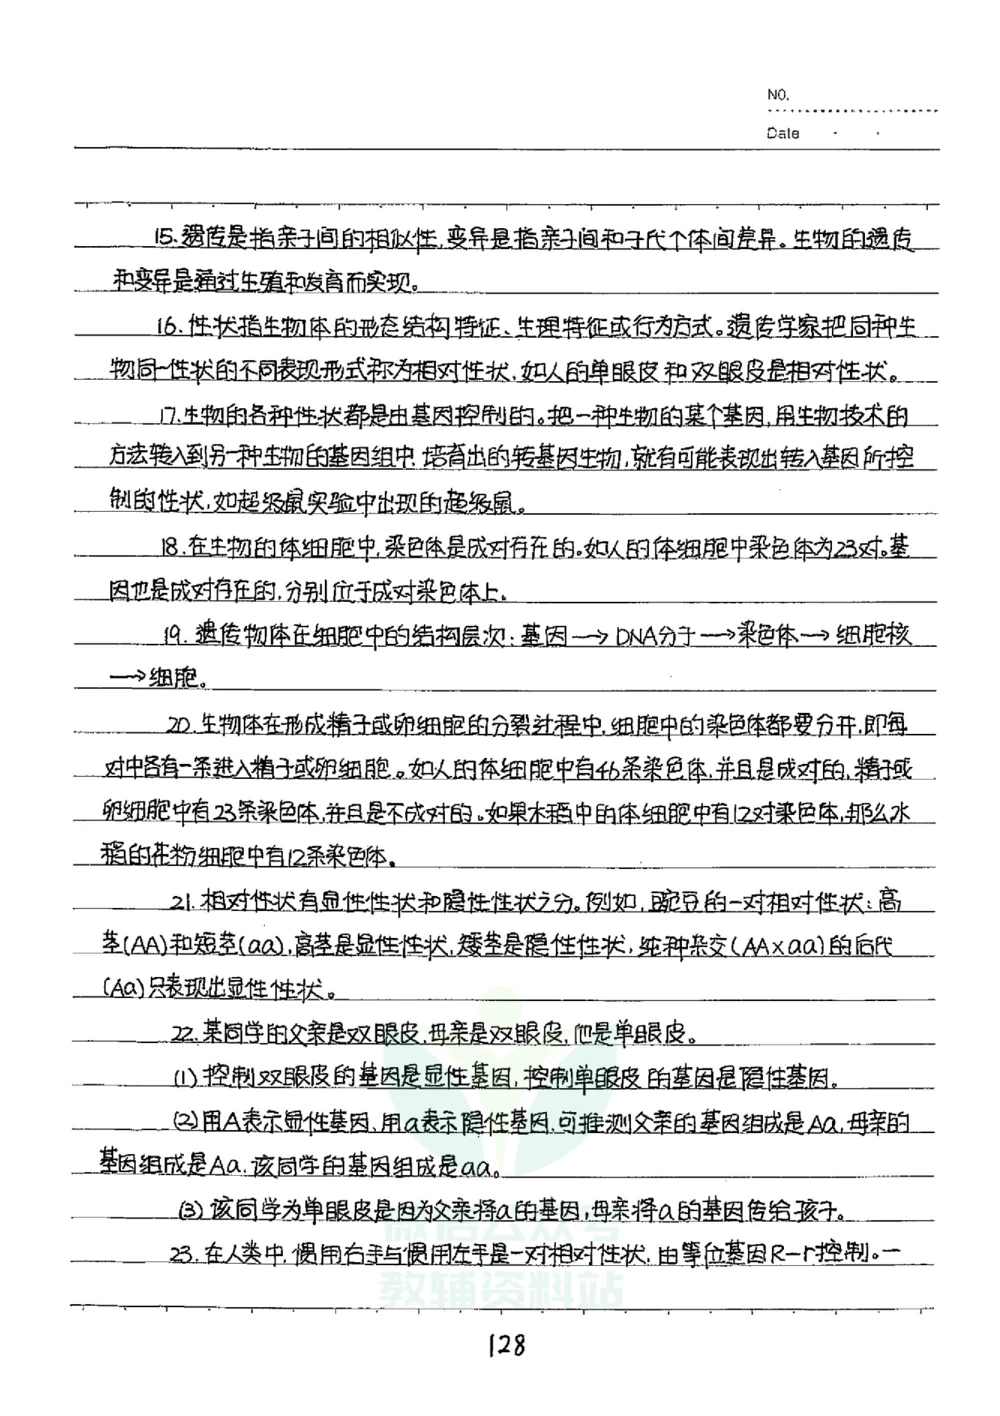 NO.
Date
15.遗传是指亲子间的相似性,变异是指亲子间和子代个体间差异。生物的遗传
和变异是通过生殖和发育而实现。
16.性状指生物体的形态结构特征、生理特征或行为方式。遗传学家把同种生
物同一性状的不同表现形式称为相对性状,如人的单眼皮和双眼皮是相对性状。
17.生物的各种性状都是由基因控制的。把一种生物的某个基因,用生物技术的
方法转入到另一种生物的基因组中,培育出的转基因生物,就有可能表现出转入基因所控
制的性状,如超级鼠实验中出现的超级鼠。
18.在生物的体细胞中,染色体是成对存在的。如人的体细胞中染色体为23对。基
因也是成对存在的,分别位于成对染色体上。
19.遗传物体在细胞中的结构层次:基因→DNA分子→染色体→细胞核
→细胞。
20.生物体在形成精子或卵细胞的分裂过程中,细胞中的染色体都要分开,即每
对中各有一条进入精子或卵细胞。如人的体细胞中有46条染色体,并且是成对的,精子或
卵细胞中有23条染色体,并且是不成对的。如果水稻中的体细胞中有12对染色体,那么水
稻的花粉细胞中有12条染色体。
21.相对性状有显性性状和隐性性状之分。例如,豌豆的一对相对性状:高
茎(AA)和短茎(aa),高茎是显性性状,矮茎是隐性性状,纯种杂交(AA×aa)的后代
(Aa)只表现出显性性状。
22.某同学的父亲是双眼皮,母亲是双眼皮,他是单眼皮。
(1)控制双眼皮的基因是显性基因,控制单眼皮的基因是隐性基因。
(2)用A表示显性基因,用a表示隐性基因,可推测父亲的基因组成是Aa,母亲的
基因组成是Aa,该同学的基因组成是aa。
(3)该同学为单眼皮是因为父亲将a的基因,母亲将a的基因传给孩子。
23.在人类中,惯用右手与惯用左手是一对相对性状,由等位基因R-r控制。一
微信公众号
教辅资料站
128